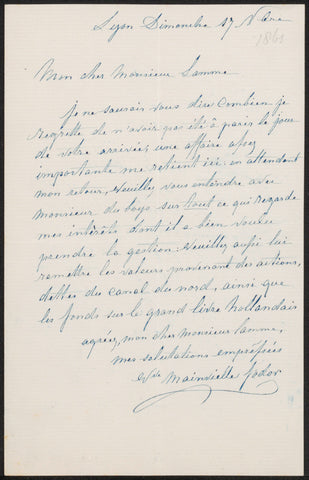 Lyon Dimanche 17 Nbre
1861
Mon cher Monsieur Lamme
je ne saurais vous dire combien je
regrette de n'avoir pas été à paris le jour
de votre arrivée, une affaire assez
importante me retient ici: en attendant
mon retour, veuillez vous entendre avec
monsieur du bays sur tout ce qui regarde
mes intérêts dont il a bien voulu
prendre la gestion: veuillez aussi lui
remettre les valeurs provenant des actions,
dettes du canal du nord, ainsi que
les fonds sur le grand livre hollandais
agréez, mon cher monsieur Lamme,
mes salutations empressées
Mainvielle fodor